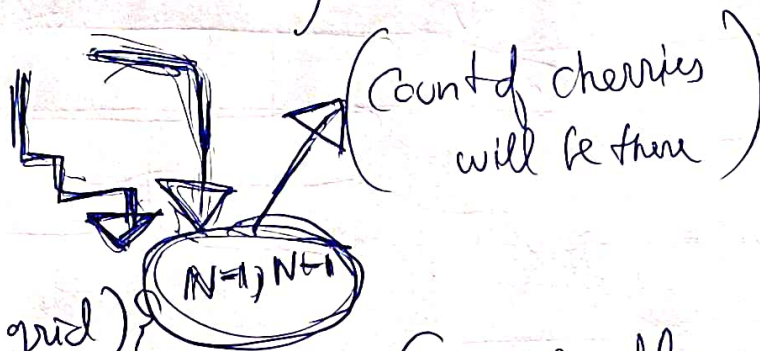 (Count of cherries
will be there)
N-1, N-1
grid)